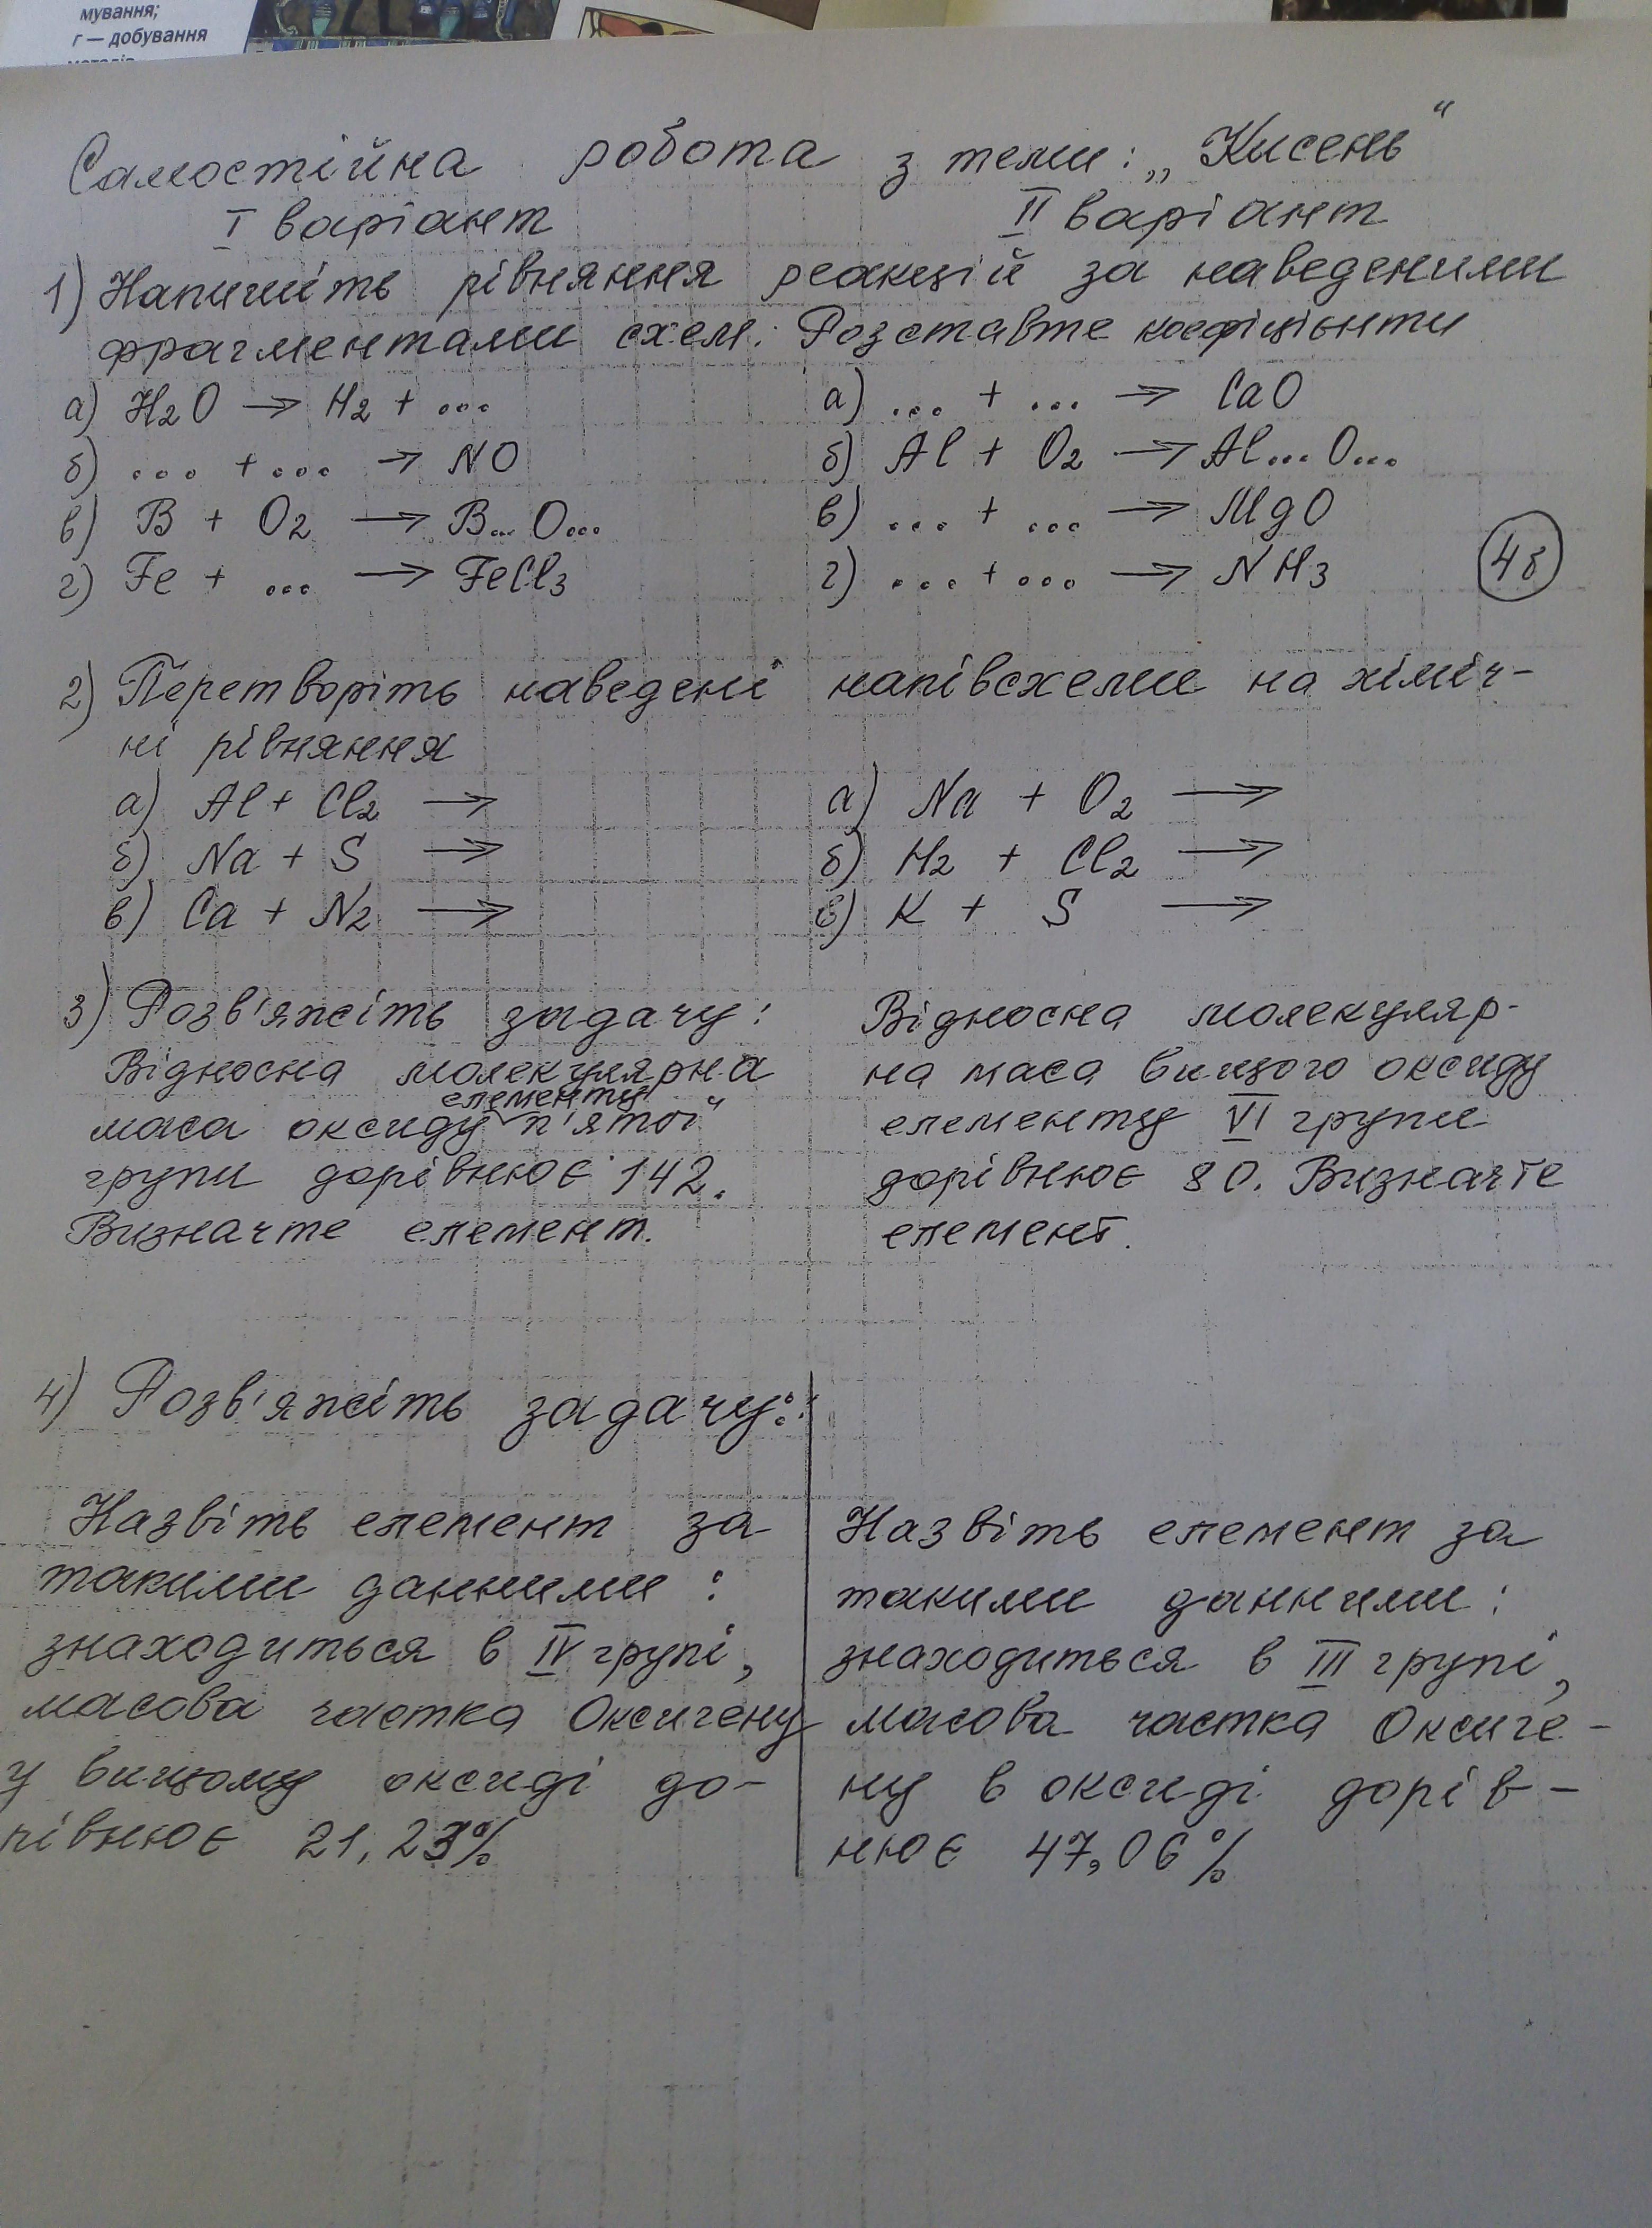 мування;
г — добування
Самостійна робота з теми: „Кисень“
I варіант II варіант
1) Напишіть рівняння реакцій за наведеними
фрагментами схем. Розставте коефіцієнти
а) H₂O → H₂ + ... а) ... + ... → CaO
б) ... + ... → NO б) Al + O₂ → Al...O...
в) B + O₂ → B...O... в) ... + ... → MgO
г) Fe + ... → FeCl₃ г) ... + ... → NH₃ 4б
2) Перетворіть наведені напівсхеми на хіміч-
ні рівняння
а) Al + Cl₂ → а) Na + O₂ →
б) Na + S → б) H₂ + Cl₂ →
в) Ca + N₂ → в) K + S →
3) Розв'яжіть задачу:
Відносна молекулярна
елементу
маса оксиду п'ятої
групи дорівнює 142.
Визначте елемент.
Відносна молекуляр-
на маса вищого оксиду
елементу VI групи
дорівнює 80. Визначте
елемент.
4) Розв'яжіть задачу:
Назвіть елемент за
такими данними:
знаходиться в IV групі,
масова частка Оксигену
у вищому оксиді до-
рівнює 21,23%
Назвіть елемент за
такими данними:
знаходиться в III групі,
масова частка Оксиге-
ну в оксиді дорів-
нює 47,06%